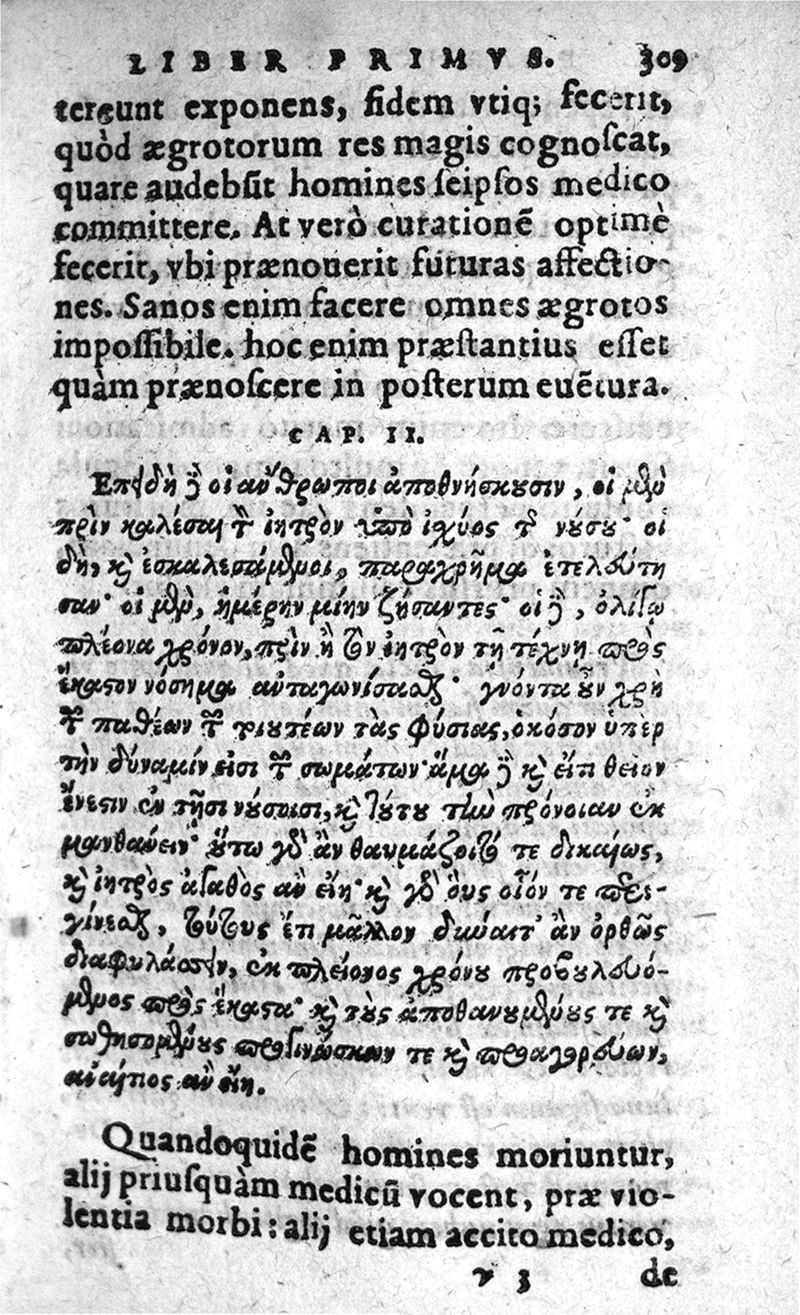 LIBER PRIMVS. 309
tereunt exponens, fidem vtiq; fecerit,
quòd ægrotorum res magis cognoſcat,
quare audebūt homines ſeipſos medico
committere. At verò curationē optimè
fecerit, vbi prænouerit futuras affectio-
nes. Sanos enim facere omnes ægrotos
impoſſibile. hoc enim præſtantius eſſet
quàm prænoſcere in poſterum euētura.
CAP. II.
Ἐπειδὴ δὲ οἱ ἄνθρωποι ἀποθνήσκουσιν, οἱ μὲν
πρὶν καλέσαι τὸν ἰητρὸν ὑπὸ ἰσχύος τῆς νούσου· οἱ
δὴ, καὶ ἐσκαλεσάμενοι, παραχρῆμα ἐτελεύτη
σαν· οἱ μὲν, ἡμέρην μίην ζήσαντες· οἱ δὲ, ὀλίγῳ
πλέονα χρόνον, πρὶν ἢ τὸν ἰητρὸν τῇ τέχνῃ πρὸς
ἕκαστον νόσημα ἀνταγωνίσασθαι· γνόντα οὖν χρὴ
τῶν παθέων τῶν τοιουτέων τὰς φύσιας, ὁκόσον ὑπὲρ
τὴν δύναμίν εἰσι τῶν σωμάτων· ἅμα δὲ καὶ εἴ τι θεῖον
ἔνεστιν ἐν τῇσι νούσοισι, καὶ τούτου τὴν πρόνοιαν ἐκ
μανθάνειν· οὕτω γὰρ ἂν θαυμάζοιτό τε δικαίως,
καὶ ἰητρὸς ἀγαθὸς ἂν εἴη· καὶ γὰρ οὓς οἷόν τε περι-
γίνεσθαι, τούτους ἔτι μᾶλλον δύναιτ' ἂν ὀρθῶς
διαφυλάσσειν, ἐκ πλείονος χρόνου προβουλευό-
μενος πρὸς ἕκαστα· καὶ τοὺς ἀποθανουμένους τε καὶ
σωθησομένους προγινώσκων τε καὶ προαγορεύων,
ἀναίτιος ἂν εἴη.
Quandoquidē homines moriuntur,
alij priuſquàm medicū vocent, præ vio-
lentia morbi: alij etiam accito medico,
v 3 de